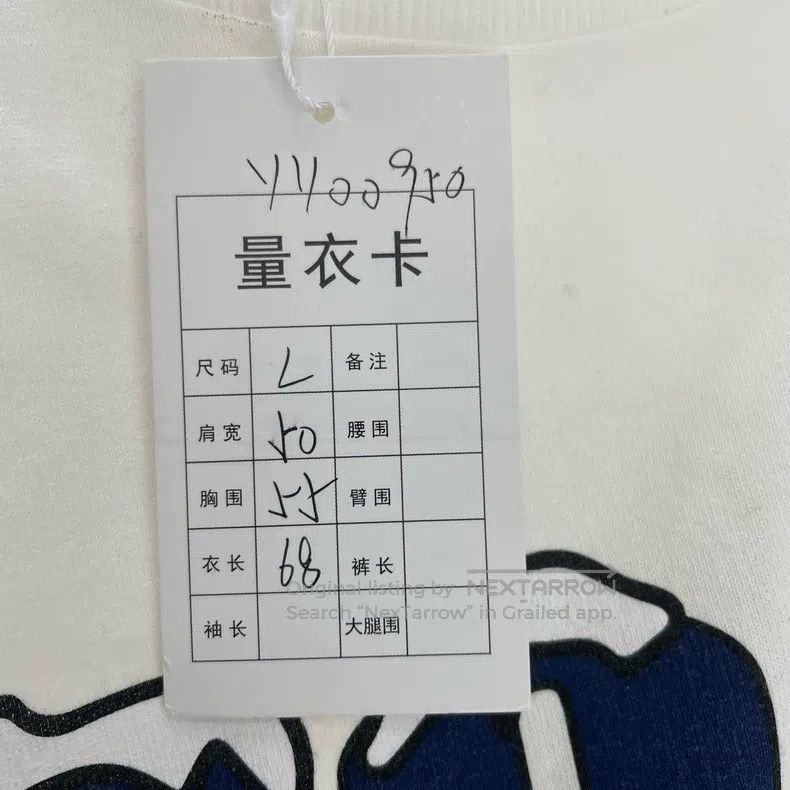 YY00950
量衣卡
尺码 L 备注
肩宽 50 腰围
胸围 55 臂围
衣长 68 裤长
袖长 大腿围
Original listing by NEXTARROW
Search "NexTarrow" in Grailed app.